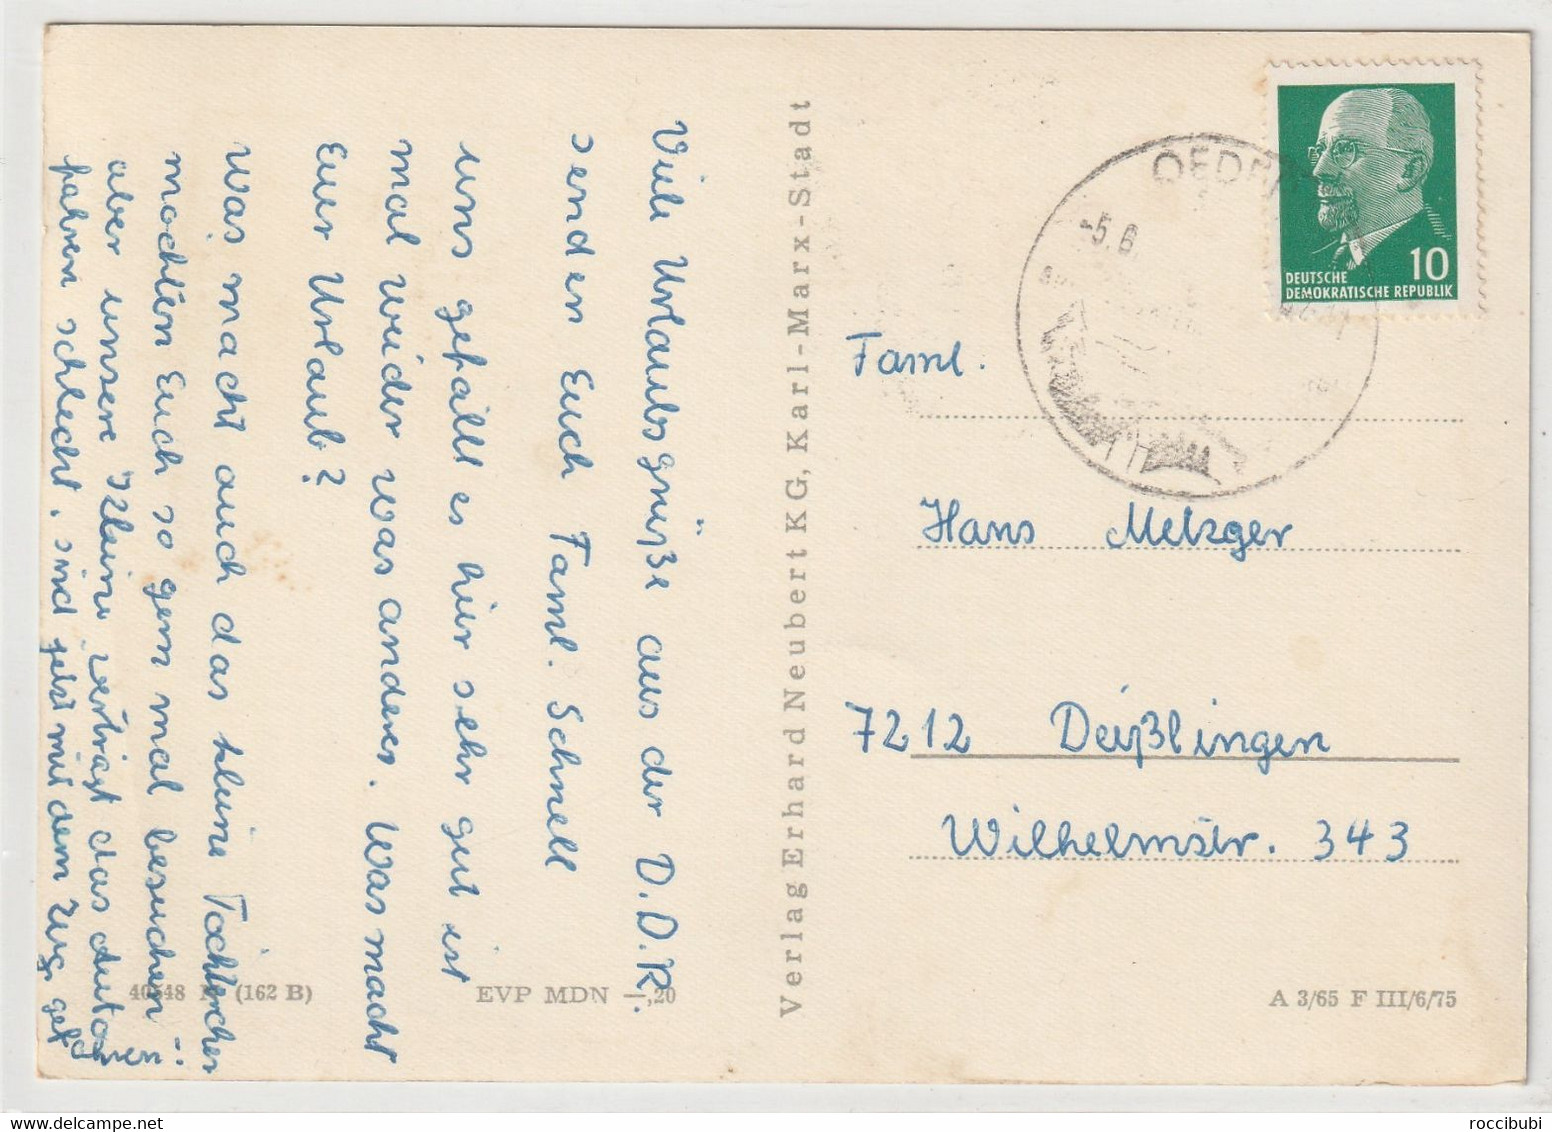 Viele Urlaubsgrüße aus der D.D.R.
senden Euch Faml. Schnell
uns gefällt es hier sehr gut ist
mal wieder was anderes. Was macht
Euer Urlaub?
Was macht auch das kleine Töchterchen
möchten Euch so gern mal besuchen
aber unsere Kleine verträgt das Autofahren
schlecht, sind jetzt mit dem Zug gef.
40548 (162 B)
EVP MDN —,20
Verlag Erhard Neubert KG, Karl-Marx-Stadt
-5.6.
10
DEUTSCHE
DEMOKRATISCHE REPUBLIK
Faml.
Hans Metzger
7212 Deißlingen
Wilhelmstr. 343
A 3/65 F III/6/75
www.delcampe.net
roccibubi